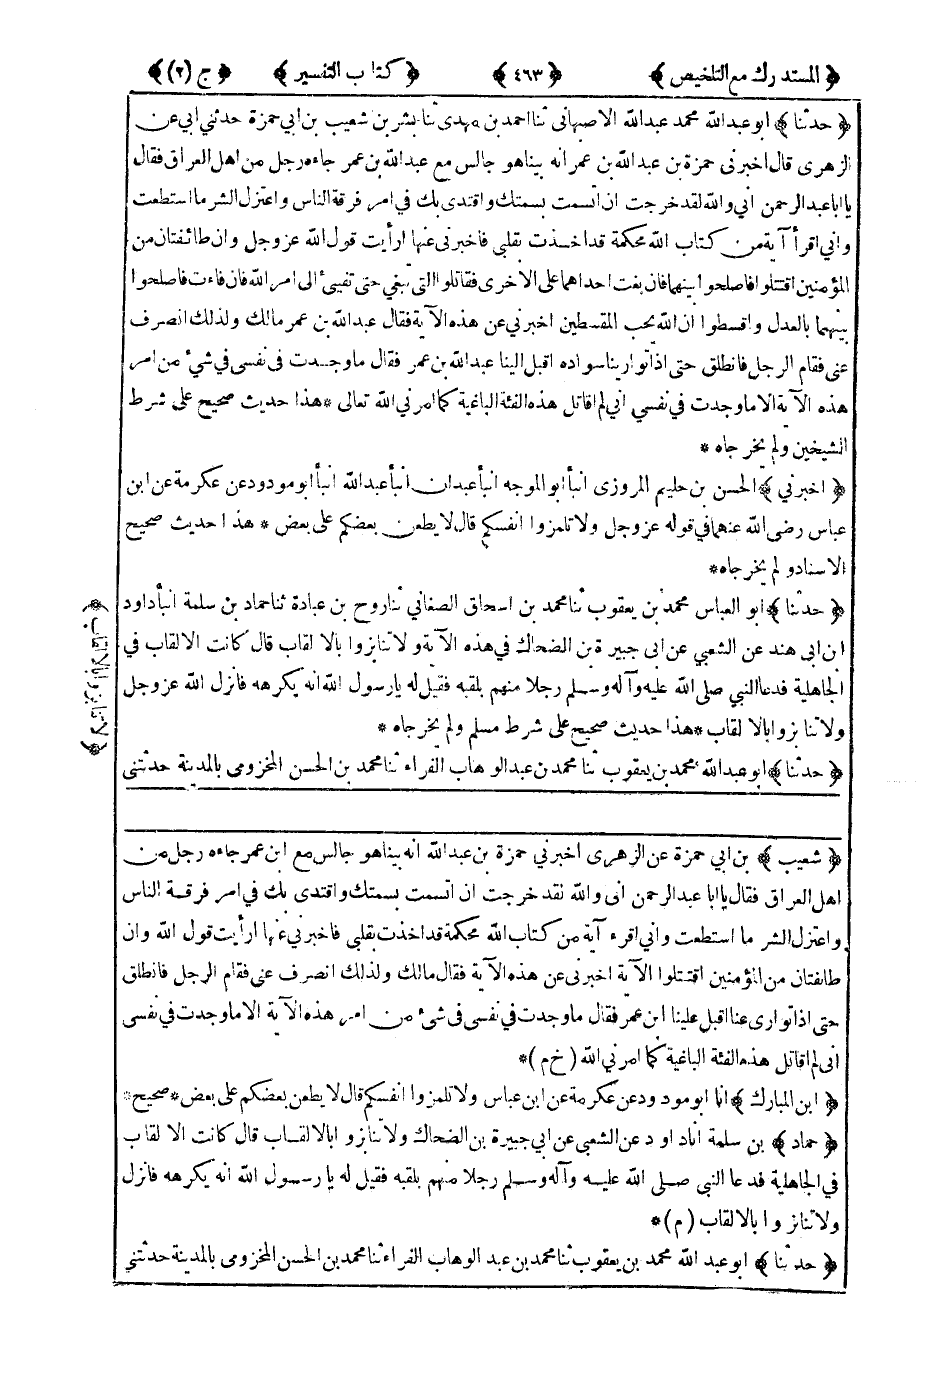 ﴿ المستدرك مع التلخيص ﴾ ﴿ ٤٦٣ ﴾ ﴿ كتاب التفسير ﴾ ﴿ ج (٢) ﴾
﴿ حدثنا ﴾ ابو عبد الله محمد عبد الله الاصبهانى ثنا احمد بن مهدى ثنا بشر بن شعيب بن ابي حمزة حدثني ابي عن
الزهرى قال اخبرنى حمزة بن عبد الله بن عمر انه بينا هو جالس مع عبد الله بن عمر جاءه رجل من اهل العراق فقال
يا ابا عبد الرحمن اني والله لقد خرجت ان اتسمت بسمتك واقتدى بك في امر فرقة الناس واعتزل الشر ما استطعت
واني اقرأ آية من كتاب الله محكمة قد اخذت بقلبى فاخبرنى عنها ارأيت قول الله عز وجل وان طائفتان من
المؤمنين اقتتلوا فاصلحوا بينهما فان بغت احداهما على الاخرى فقاتلوا التى تبغي حتى تفيئ الى امر الله فان فاءت فاصلحوا
بينهما بالعدل واقسطوا ان الله يحب المقسطين اخبرني عن هذه الآية فقال عبد الله بن عمر مالك ولذلك انصرف
عنى فقام الرجل فانطلق حتى اذا توارينا سواده اقبل الينا عبد الله بن عمر فقال ما وجدت فى نفسى في شئ من امر
هذه الآية الا ما وجدت في نفسي اني لم اقاتل هذه الفئة الباغية كما امرني الله تعالى * هذا حديث صحيح على شرط
الشيخين ولم يخرجاه *
﴿ اخبرني ﴾ الحسن بن حليم المروزى انبأ ابو الموجه انبأ عبدان انبأ عبد الله انبأ ابو مودود عن عكرمة عن ابن
عباس رضى الله عنهما في قوله عز وجل ولا تلمزوا انفسكم قال لا يطعن بعضكم على بعض * هذا حديث صحيح
الاسناد ولم يخرجاه *
﴿ حدثنا ﴾ ابو العباس محمد بن يعقوب ثنا محمد بن اسحاق الصغاني ثنا روح بن عبادة ثنا حماد بن سلمة انبأ داود
ابن ابى هند عن الشعبي عن ابى جبيرة بن الضحاك في هذه الآية ولا تنابزوا بالالقاب قال كانت الالقاب في
الجاهلية فدعا النبي صلى الله عليه وآله وسلم رجلا منهم بلقبه فقيل له يا رسول الله انه يكرهه فانزل الله عز وجل
ولا تنابزوا بالالقاب * هذا حديث صحيح على شرط مسلم ولم يخرجاه *
﴿ حدثنا ﴾ ابو عبد الله محمد بن يعقوب ثنا محمد بن عبد الوهاب الفراء ثنا محمد بن الحسن المخزومى بالمدينة حدثتنى
﴿ لا تنابزوا بالالقاب ﴾
﴿ شعيب ﴾ بن ابي حمزة عن الزهرى اخبرني حمزة بن عبد الله انه بينا هو جالس مع ابن عمر جاءه رجل من
اهل العراق فقال يا ابا عبد الرحمن انى والله لقد خرجت ان اتسمت بسمتك واقتدى بك في امر فرقة الناس
واعتزل الشر ما استطعت واني اقرء آية من كتاب الله محكمة قد اخذت بقلبى فاخبرني عنها ارأيت قول الله وان
طائفتان من المؤمنين اقتتلوا الآية اخبرنى عن هذه الآية فقال مالك ولذلك انصرف عنى فقام الرجل فانطلق
حتى اذا توارى عنا اقبل علينا ابن عمر فقال ما وجدت في نفسى فى شئ من امر هذه الآية الا ما وجدت في نفسى
انى لم اقاتل هذه الفئة الباغية كما امرني الله (خ م) *
﴿ ابن المبارك ﴾ انا ابو مودود عن عكرمة عن ابن عباس ولا تلمزوا انفسكم قال لا يطعن بعضكم على بعض * صحيح *
﴿ حماد ﴾ بن سلمة انا داود عن الشعبى عن ابي جبيرة بن الضحاك ولا تنابزوا بالالقاب قال كانت الالقاب
في الجاهلية فدعا النبى صلى الله عليه وآله وسلم رجلا منهم بلقبه فقيل له يا رسول الله انه يكرهه فانزل
ولا تنابزوا بالالقاب (م) *
﴿ حدثنا ﴾ ابو عبد الله محمد بن يعقوب ثنا محمد بن عبد الوهاب الفراء ثنا محمد بن الحسن المخزومى بالمدينة حدثتني